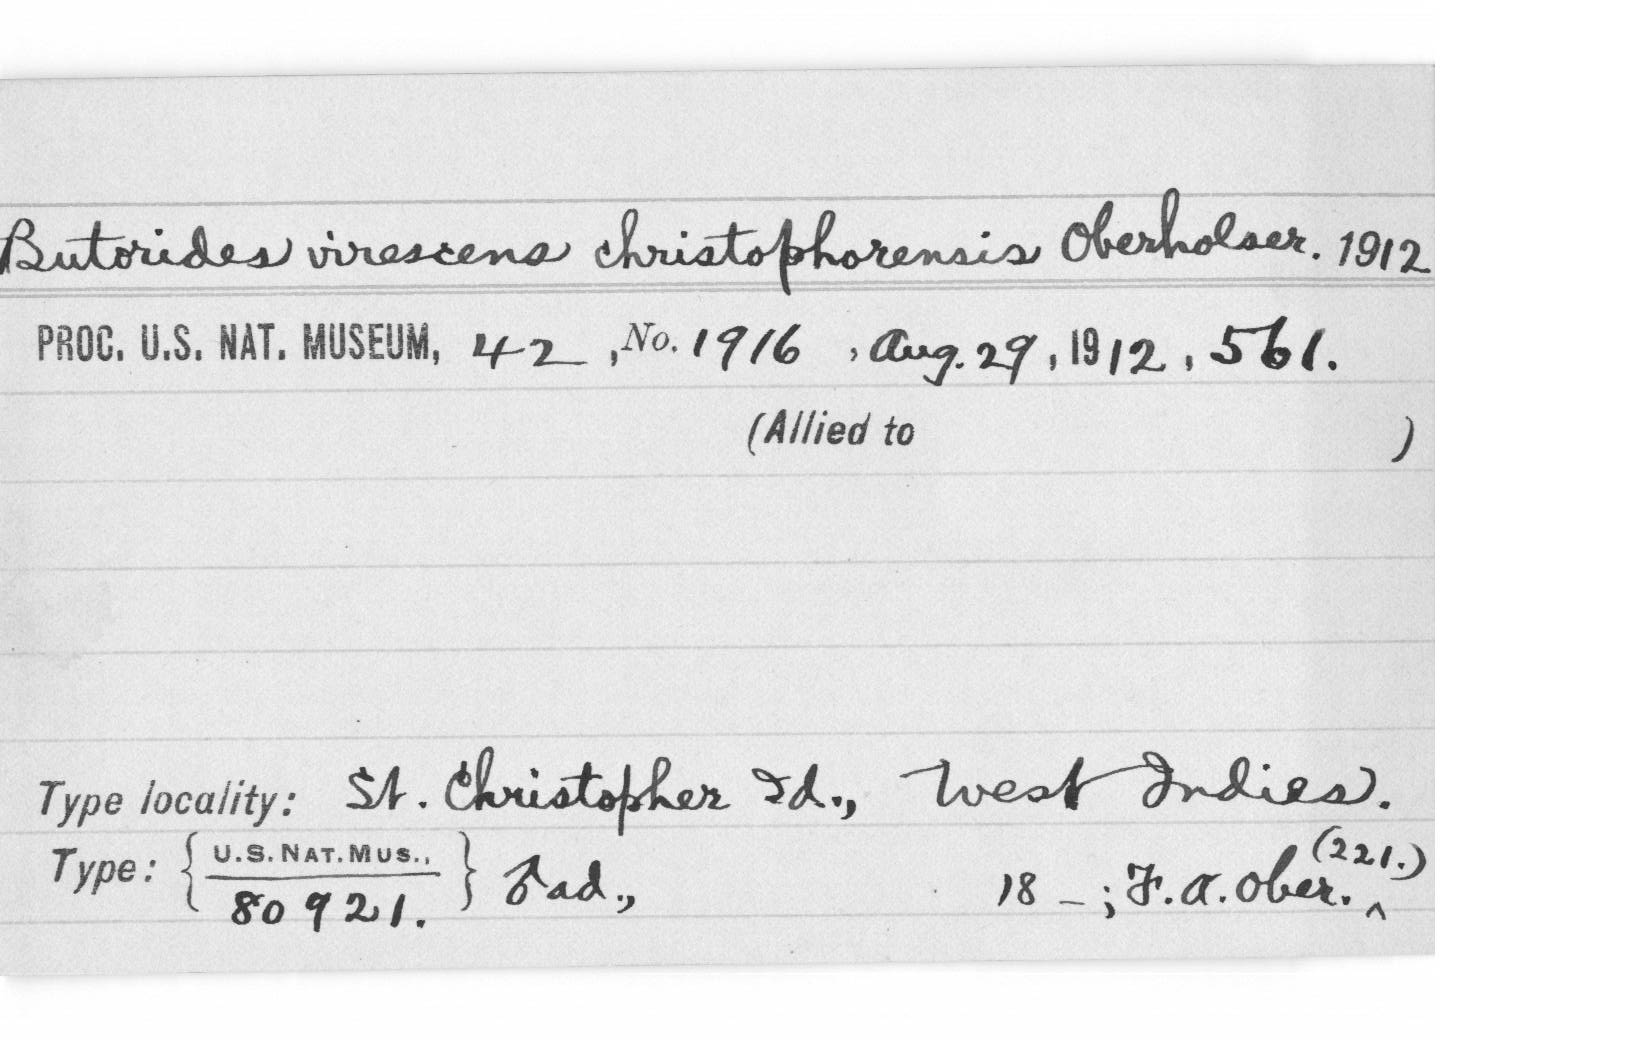 Butorides virescens christophorensis Oberholser. 1912
PROC. U.S. NAT. MUSEUM, 42, No. 1916, Aug. 29, 1912, 561.
(Allied to )
Type locality: St. Christopher Id., West Indies.
Type: { U.S. NAT. MUS., 80921. } ♂ ad., 18 – ; F. A. Ober. ^ (221.)